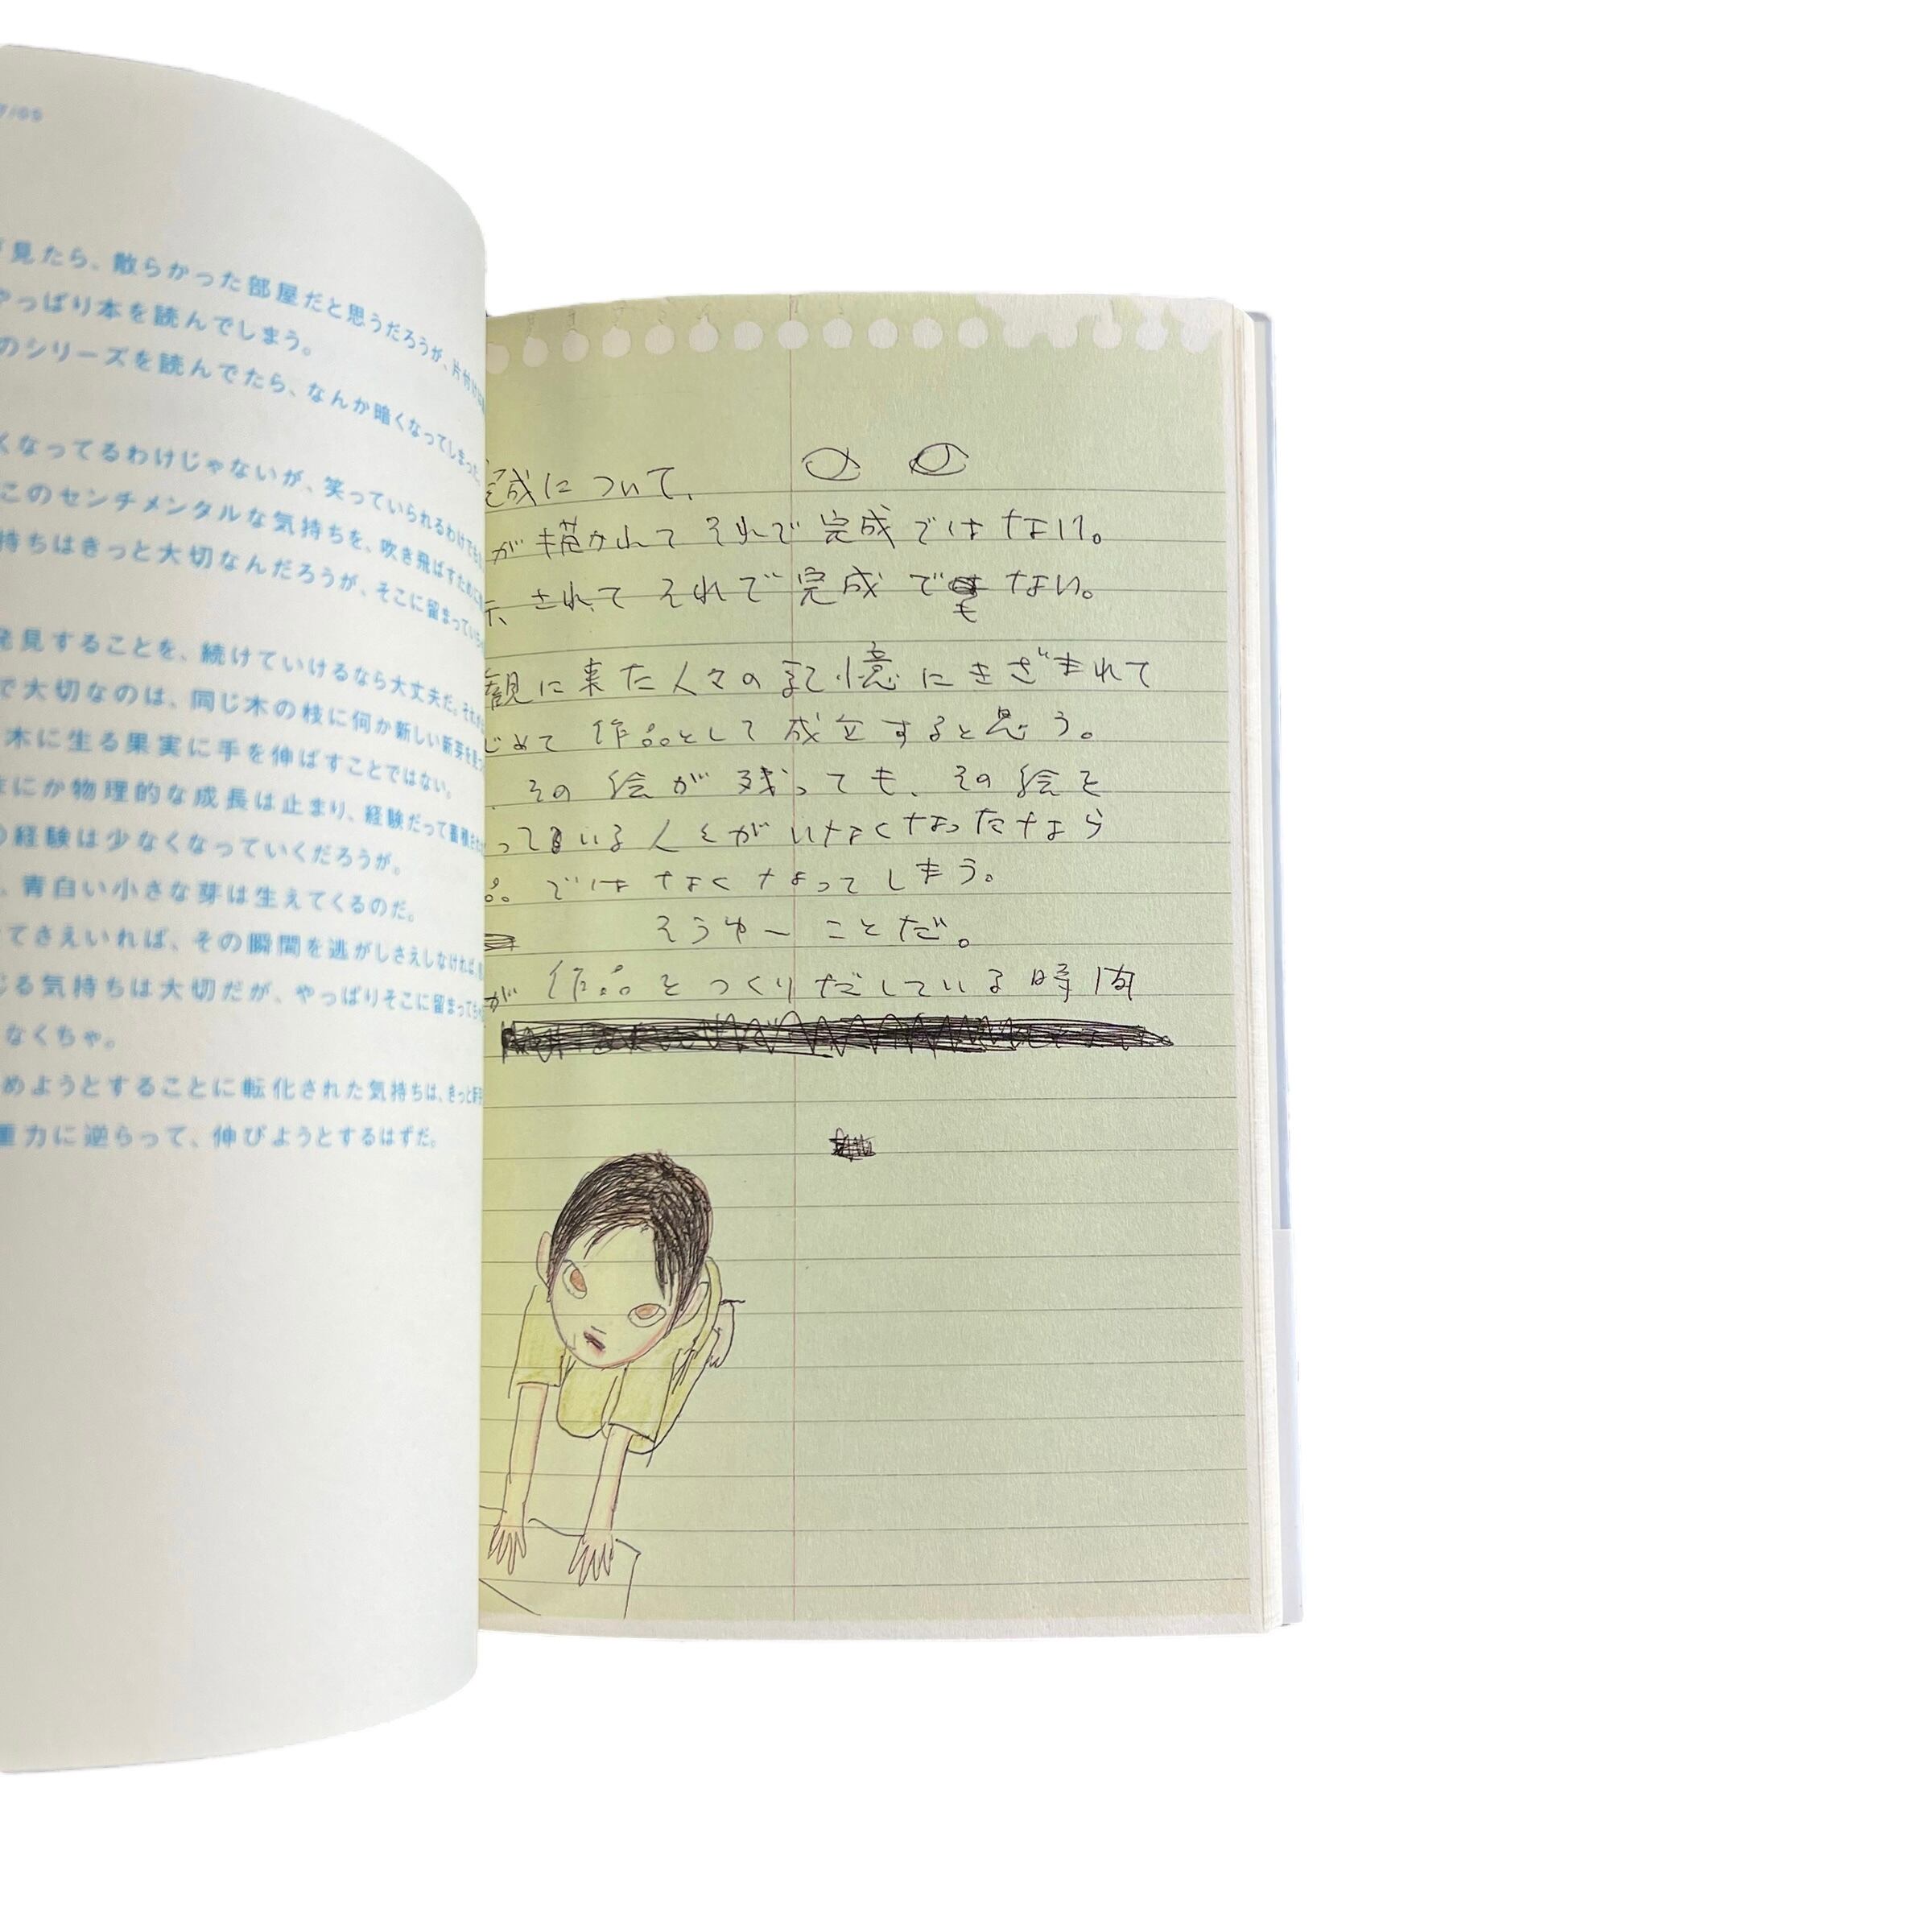 7/05
見たら、散らかった部屋だと思うだろうが、片付け
やっぱり本を読んでしまう。
のシリーズを読んでたら、なんか暗くなってしまった。
くなってるわけじゃないが、笑っていられるわけでも
このセンチメンタルな気持ちを、吹き飛ばすために
持ちはきっと大切なんだろうが、そこに留まっていち
発見することを、続けていけるなら大丈夫だ。それが
で大切なのは、同じ木の枝に何か新しい新芽を見つ
木に生る果実に手を伸ばすことではない。
にか物理的な成長は止まり、経験だって蓄積され
の経験は少なくなっていくだろうが。
、青白い小さな芽は生えてくるのだ。
てさえいれば、その瞬間を逃がしさえしなければ、
じる気持ちは大切だが、やっぱりそこに留まってちゃ
なくちゃ。
めようとすることに転化された気持ちは、きっと新
重力に逆らって、伸びようとするはずだ。
成について、
が描かれてそれで完成ではない。
されてそれで完成でもない。
観に来た人々の記憶にきざまれて
じめて作品として成立すると思う。
その絵が残っても、その絵を
っている人々がいなくなったなら
品ではなくなってしまう。
そうゆーことだ。
が作品をつくりだしている時間